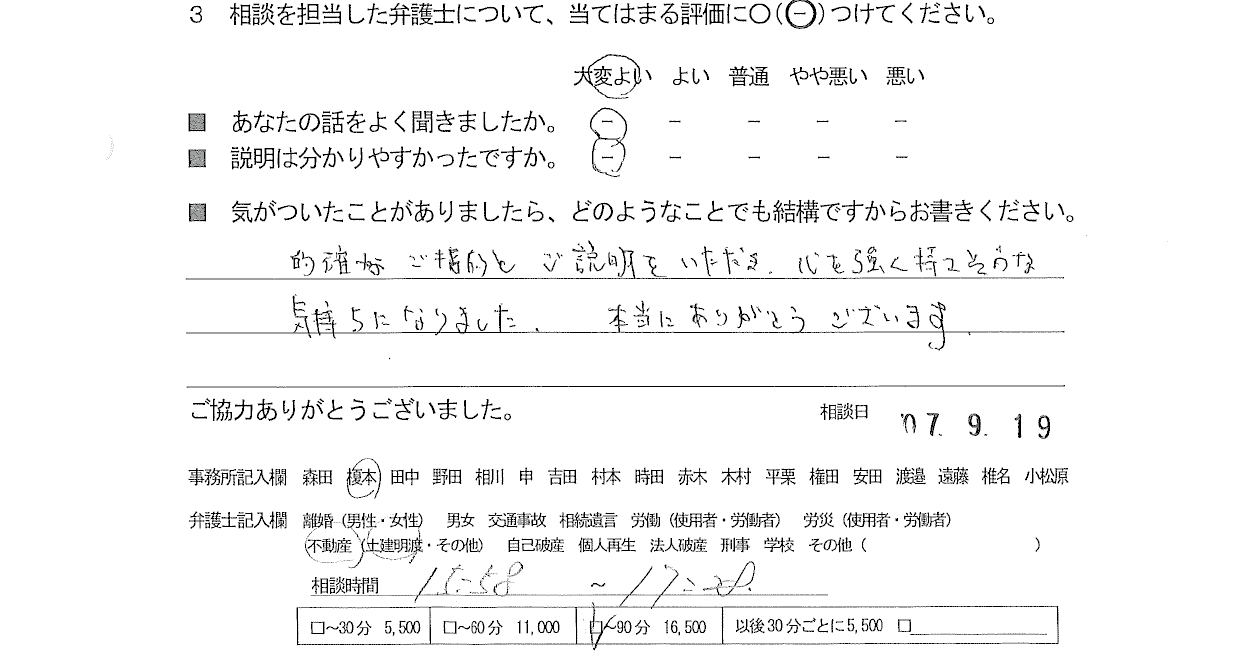 3 相談を担当した弁護士について、当てはまる評価に〇(⊖)つけてください。
大変よい よい 普通 やや悪い 悪い
■ あなたの話をよく聞きましたか。 － － － － －
■ 説明は分かりやすかったですか。 － － － － －
■ 気がついたことがありましたら、どのようなことでも結構ですからお書きください。
的確な ご指摘と ご説明を いただき、心を強く持てそうな
気持ちになりました。 本当にありがとうございます。
ご協力ありがとうございました。
相談日 '07. 9. 19
事務所記入欄 森田 榎本 田中 野田 相川 申 吉田 村本 時田 赤木 木村 平栗 権田 安田 渡邉 遠藤 椎名 小松原
弁護士記入欄 離婚（男性・女性） 男女 交通事故 相続遺言 労働（使用者・労働者） 労災（使用者・労働者）
不動産（土建明渡・その他） 自己破産 個人再生 法人破産 刑事 学校 その他（ ）
相談時間 15:58 ～ 17:28
□～30分 5,500 □～60分 11,000 □～90分 16,500 以後30分ごとに5,500 □